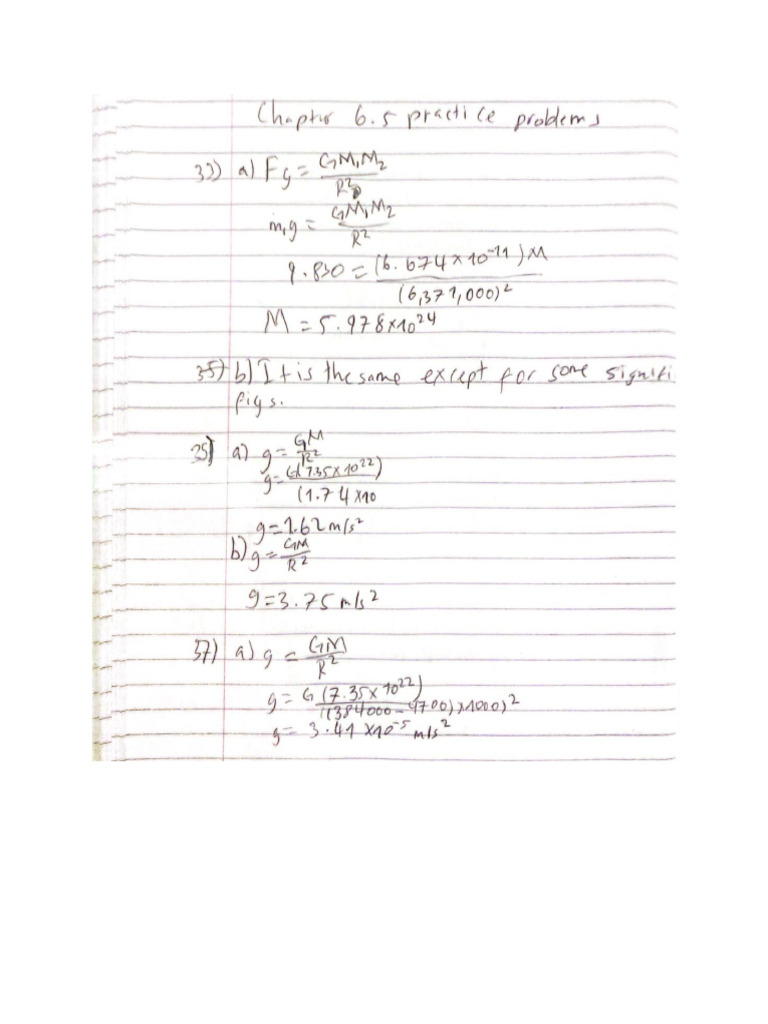 Chapter 6.5 practice problems
33) a) Fg = GM₁M₂/R²
m₁g = GM₁M₂/R²
9.830 = (6.674×10⁻¹¹)M/(6,371,000)²
M = 5.978×10²⁴
35) b) It is the same except for some signifi
figs.
35) a) g = GM/R²
g = G(7.35×10²²)/(1.74×10
g = 1.62 m/s²
b) g = GM/R²
g = 3.75 m/s²
37) a) g = GM/R²
g = G(7.35×10²²)/((384000-4700)×1000)²
g = 3.41×10⁻⁵ m/s²